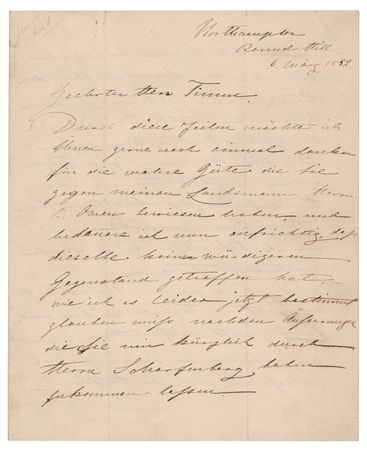 Northampton
Round Hill
6 März 1852.
Geehrter Herr Timm.
Durch diese Zeilen möchte ich
Ihnen gerne noch einmal danken
für die wahre Güte die Sie
gegen meinen Landsmann Herrn
Owen bewiesen haben, und
bedauere ich nun aufrichtig, daß
dieselbe keinen würdigeren
Gegenstand getroffen hat,
wie ich es leider jetzt bestimmt
glauben muß nachdem
die Sie mir kürzlich durch
Herrn Scharfenberg haben
zukommen lassen